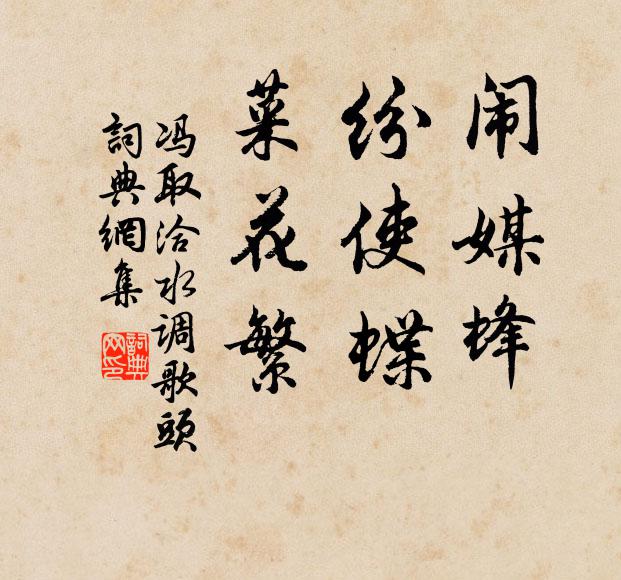 闹媒蜂
纷使蝶
菜花繁
冯取洽水调歌頭
詞典網集
詞典网印